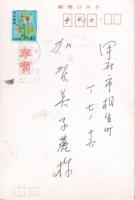 郵便はがき
400
甲府市相生町
一ノ七ノ十六
加賀美子麓様
年賀
40